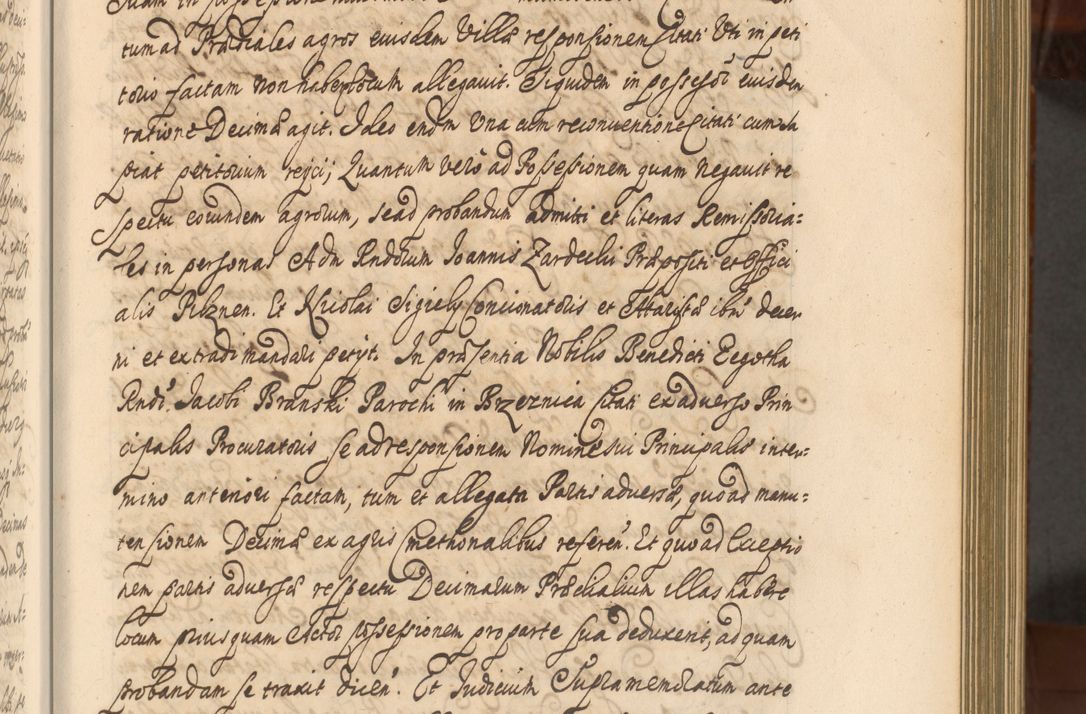 tum ad Prædiales agros eiusdem Villæ responsionem Citati Uti in peti
torio factam non habentium allegavit. Siquidem in possessori eiusdem
ratione Decimæ agit. Ideo endm Una cum reconventione Citati cum sa
piat petitorium reijci; Quantum verò ad Possessionem quam negavit re
spectu eorundem agrorum, se ad probandum admitti et literas Remissoria=
les in personas Adm Rndorum Joannis Zardecki Præpositi et Offici
alis Pilznen. Et Nicolai Sigiely Concionatoris et Altaristæ ibn̄ decer
ni et extradi mandari petijt. In præsentia Nobilis Benedicti Eegotha
Rndi Jacobi Branski Parochi in Brzeznica Citati ex adverso Prin
cipalis Procuratoris se ad responsionem Nomine sui Principalis inter=
mino anteriori factam, tum et allegata Partis adversæ, quoad manu=
tensionem Decimæ ex agris Cmethonalibus referen̄. Et quoad Exceptio
nem partis adversæ respectu Decimarum Prædialium illas habere
locum priusquam Actor possessionem pro parte sua deduxerit, ad quam
probandam se traxit dicen̄. Et Judicium Supramemoratum ante